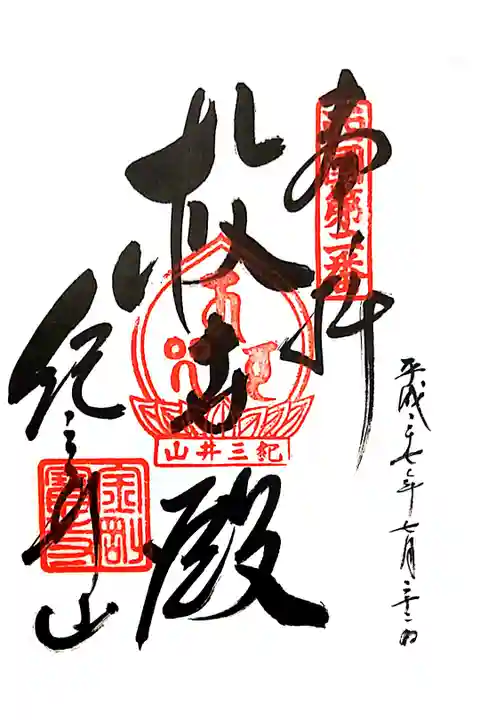 奉拝
西国第二番
救世殿
紀三井山
紀三井山
金剛寶
平成二七年七月二十二日